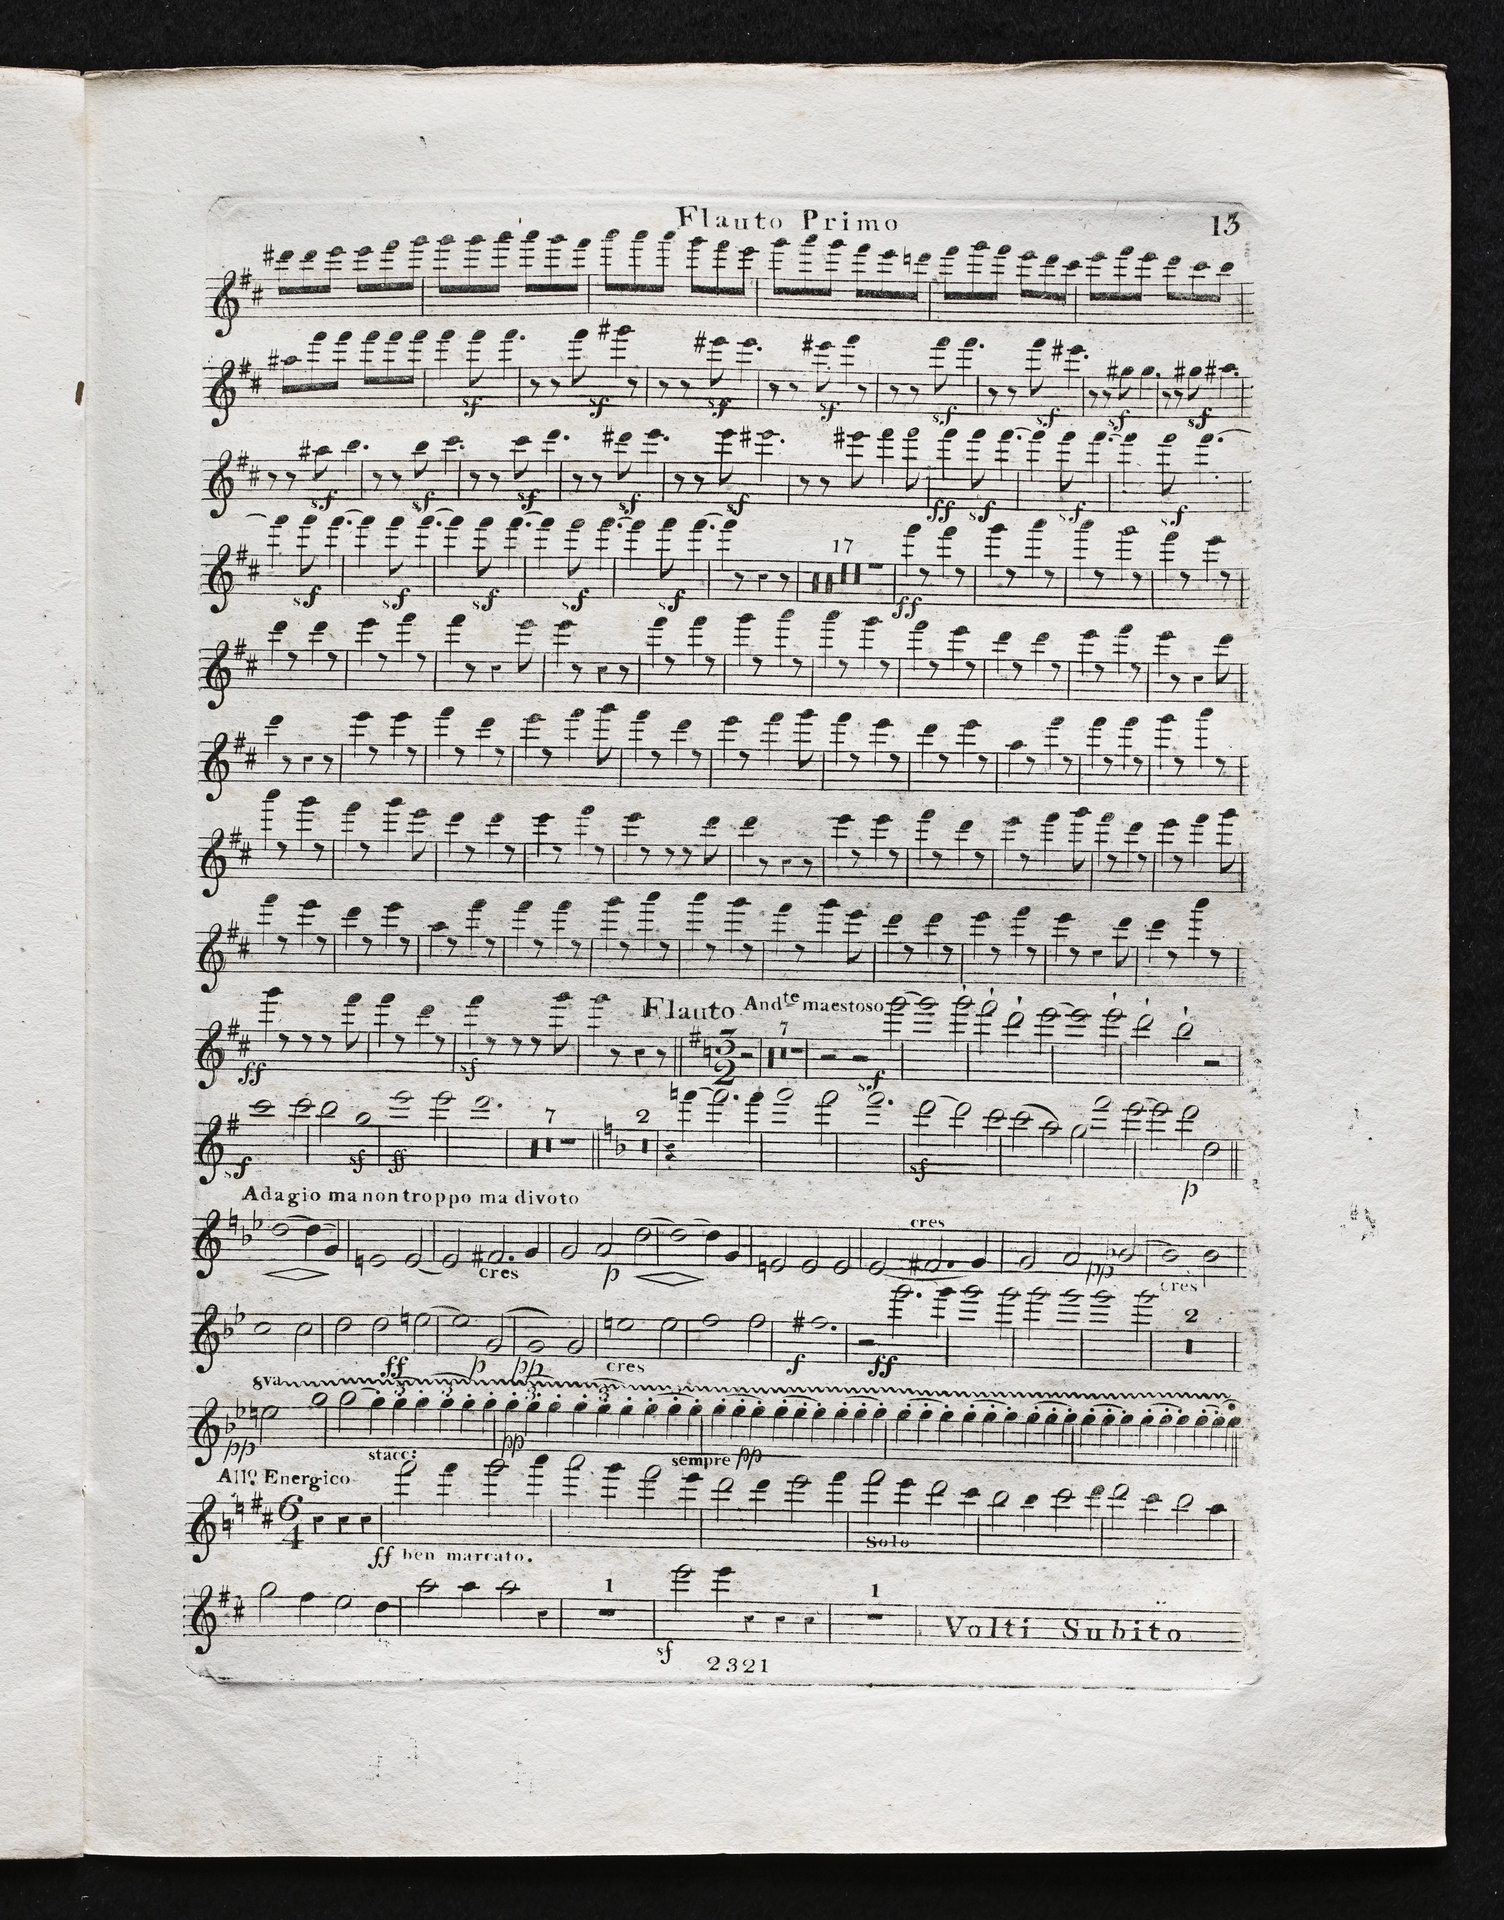 Flauto Primo 13
sf sf sf sf sf sf sf sf
sf sf sf sf sf ff sf sf sf
17
sf sf sf sf sf ff
Flauto Andte maestoso
3 7
2
ff sf sf
7 2
sf sf ff sf p
Adagio ma non troppo ma divoto
cres
cres p pp cres
2
ff p pp cres f ff
8va
3 3 3 3
pp stacc: pp sempre pp
All? Energico
6
4
Solo
ff ben marcato.
1 1
Volti Subito
sf
2321